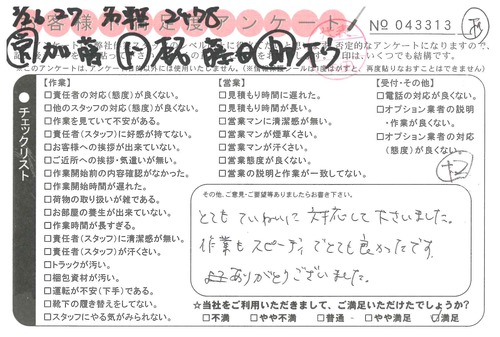 お客様不満足度アンケート
No 043313
※このアンケートは、アンケート目的以外には使用いたしません。
チェックリスト
【作業】
□責任者の対応(態度)が良くない。
□他のスタッフの対応(態度)が良くない。
□作業を見ていて不安がある。
□責任者(スタッフ)に好感が持てない。
□お客様への挨拶が出来ていない。
□ご近所への挨拶・気遣いが無い。
□作業開始前の内容確認がなかった。
□作業開始時間が遅れた。
□荷物の取り扱いが雑である。
□お部屋の養生が出来ていない。
□作業時間が長すぎる。
□責任者(スタッフ)に清潔感が無い。
□責任者(スタッフ)が汗くさい。
□トラックが汚い。
□梱包資材が汚い。
□運転が不安(下手)である。
□靴下の履き替えをしてない。
□スタッフにやる気がみられない。
【営業】
□見積もり時間に遅れた。
□見積もり時間が長い。
□営業マンに清潔感が無い。
□営業マンが煙草くさい。
□営業マンが汗くさい。
□営業態度が良くない。
□営業の説明と作業が一致してない。
【受付・その他】
□電話の対応が良くない。
□オプション業者の説明・作業が良くない。
□オプション業者の対応(態度)が良くない。
その他、ご意見・ご要望等ありましたらお書き下さい。
とてもていねいに対応して下さいました。
作業もスピーディでとても良かったです。
ありがとうございました。
☆当社をご利用いただきまして、ご満足いただけたでしょうか?
□不満 □やや不満 □普通 □やや満足 ☑満足